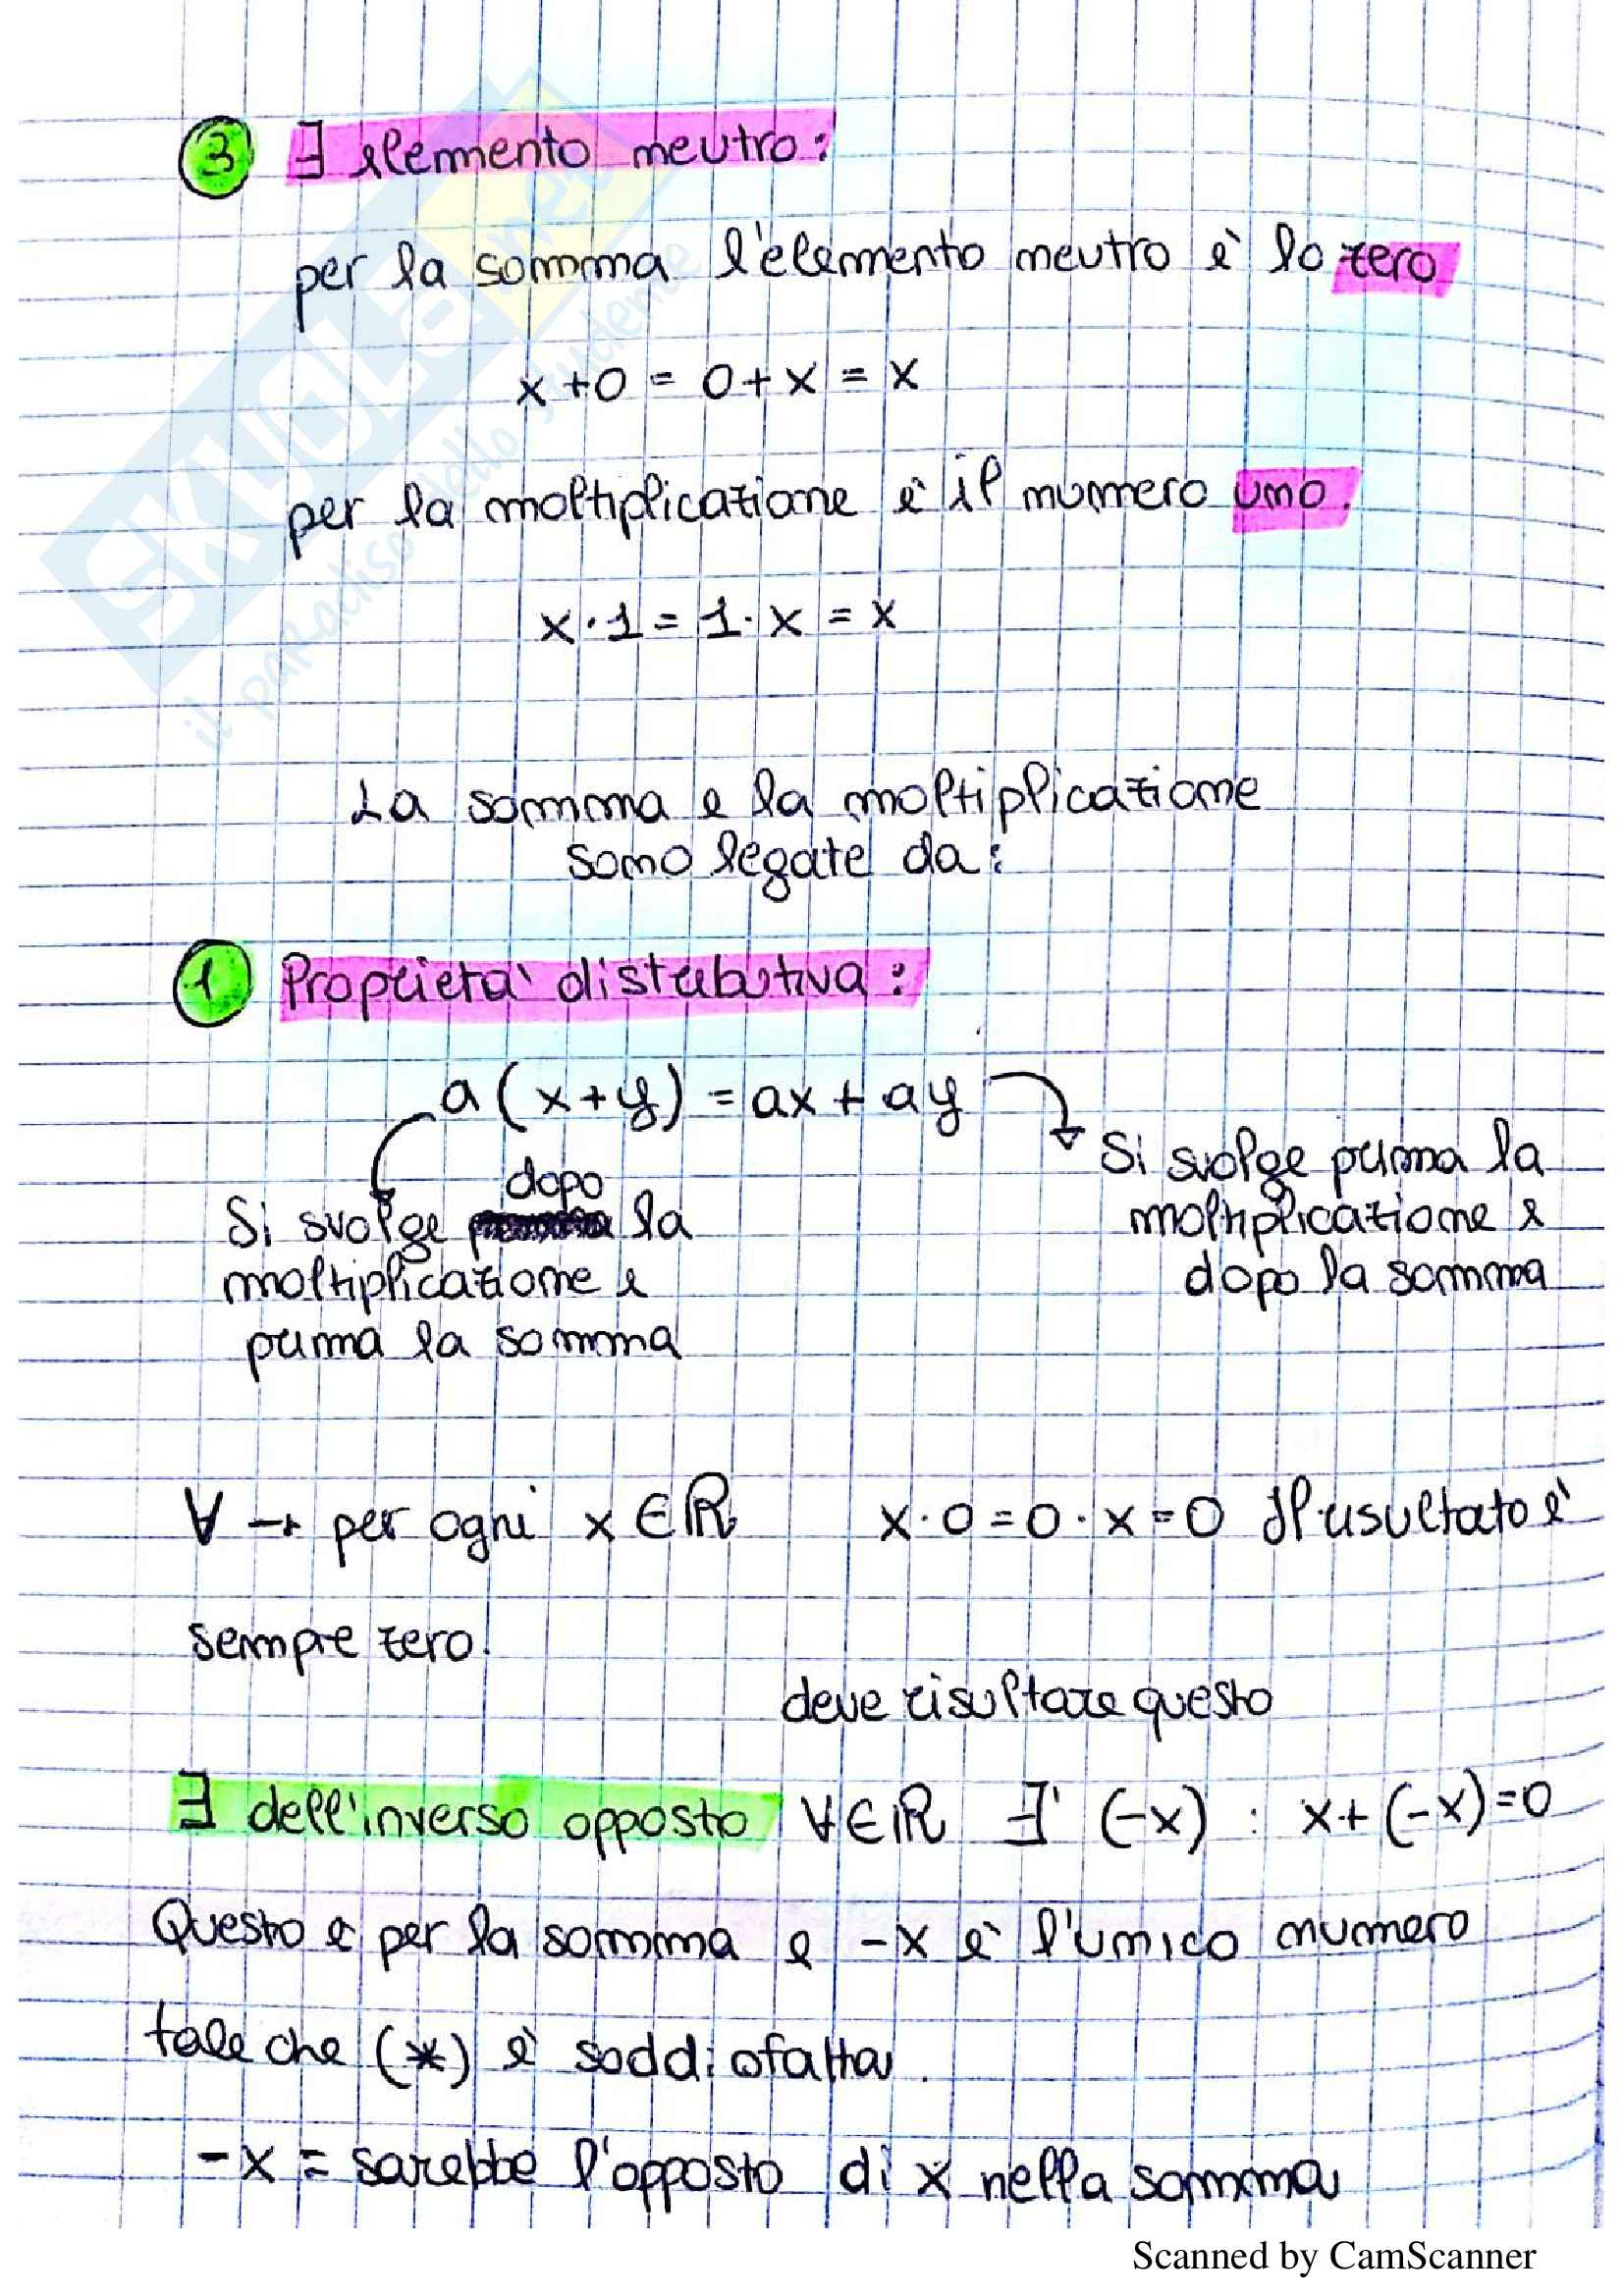 3 ∃ elemento neutro:
per la somma l'elemento neutro è lo zero
x+0 = 0+x = x
per la moltiplicazione è il numero uno.
x·1 = 1·x = x
La somma e la moltiplicazione
sono legate da:
1 Proprietà distributiva:
a(x+y) = ax + ay
Si svolge prima la
moltiplicazione e
dopo la somma
dopo
Si svolge la
moltiplicazione e
prima la somma
∀ → per ogni x ∈ ℝ x·0 = 0·x = 0 Il risultato è
sempre zero.
deve risultare questo
∃ dell'inverso opposto ∀∈ℝ ∃! (-x) : x+(-x)=0
Questo è per la somma e -x è l'unico numero
tale che (*) è soddisfatta.
-x = sarebbe l'opposto di x nella somma
SKUOLA.net
il paradiso dello studente
Scanned by CamScanner